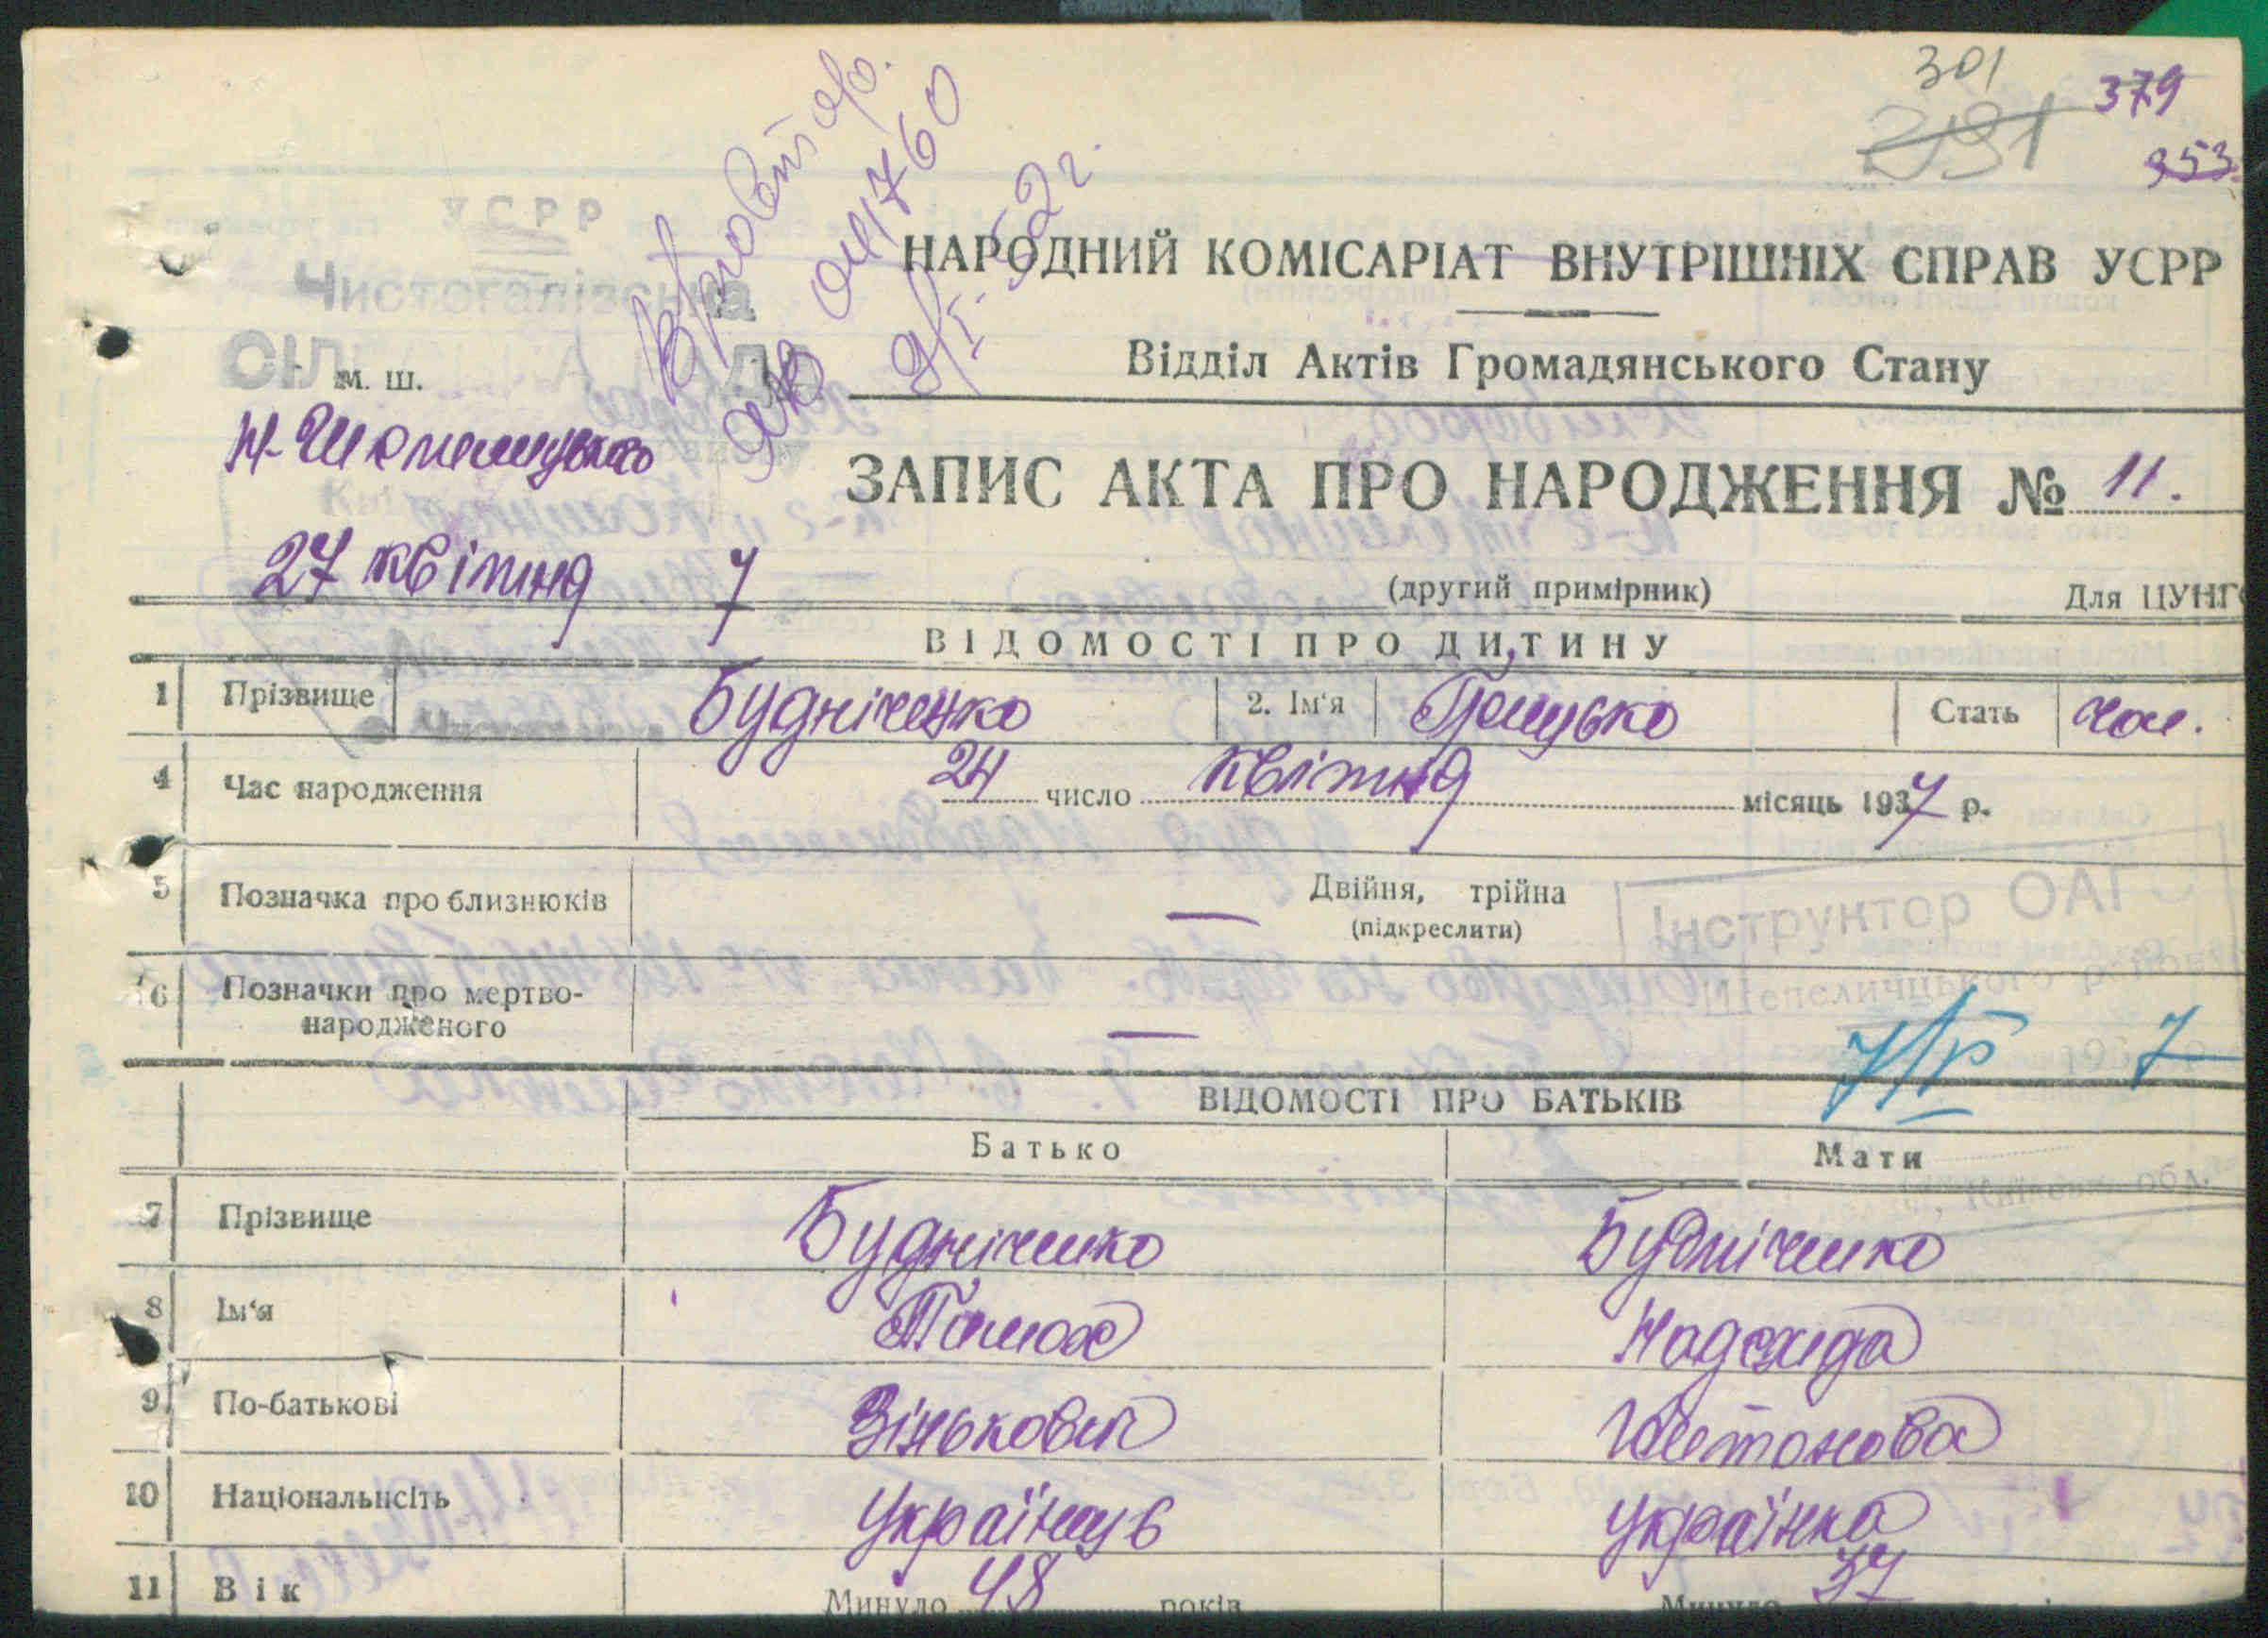 301
291
379
353
УСРР
Чистогалівська
НАРОДНИЙ КОМІСАРІАТ ВНУТРІШНІХ СПРАВ УСРР
Відділ Актів Громадянського Стану
м. ш.
9/I-52 г.
ЗАПИС АКТА ПРО НАРОДЖЕННЯ № 11.
27 квітня 7
(другий примірник)
Для ЦУНГО
ВІДОМОСТІ ПРО ДИТИНУ
1 Прізвище Будніченко 2. Ім'я Грицько Стать чол.
4 Час народження 24 число квітня місяць 1937 р.
5 Позначка про близнюків — Двійня, трійна
(підкреслити)
Інструктор ОАГС
Шепеличцького району
6 Позначки про мертво-
народженого —
7/V 193 7
ВІДОМОСТІ ПРО БАТЬКІВ
Батько Мати
7 Прізвище Будніченко Будніченко
8 Ім'я Тимох Надежда
9 По-батькові Зінькович
10 Національнсіть Українець Українка
11 Вік Минуло 48 років Минуло 37